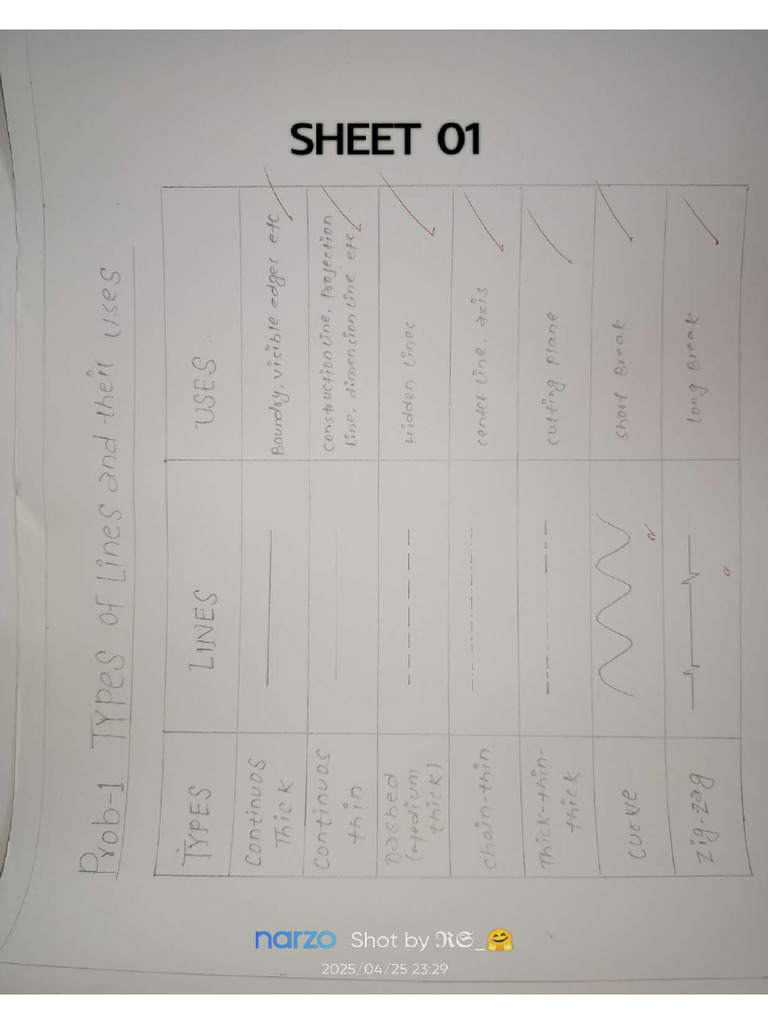 SHEET 01
Prob-1 TYPes of Lines and their uses
TYPES LINES USES
Continuos Thick
Boundry, visible edges etc
Continuos thin
construction line, Projection
line, dimension line etc
Dashed (Medium thick)
Hidden Lines
chain-thin
center line, axis
Thick-thin-thick
cutting Plane
curve
short Break
zig-zag
long Break
narzo Shot by ℜ𝔖_🤗
2025/04/25 23:29